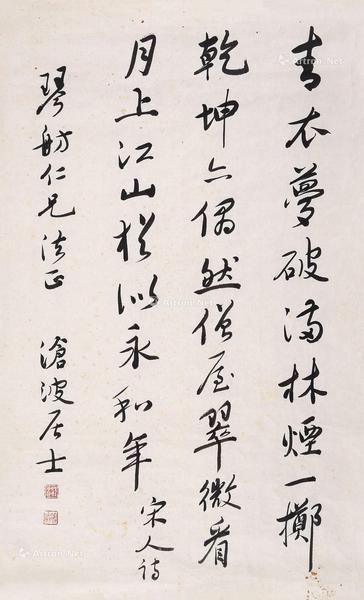 青衣夢破滿林煙一擲
乾坤亦偶然僧屋翠微看
月上江山猶似永和年
宋人詩
琴舫仁兄法正
滄波居士
Artron.Net